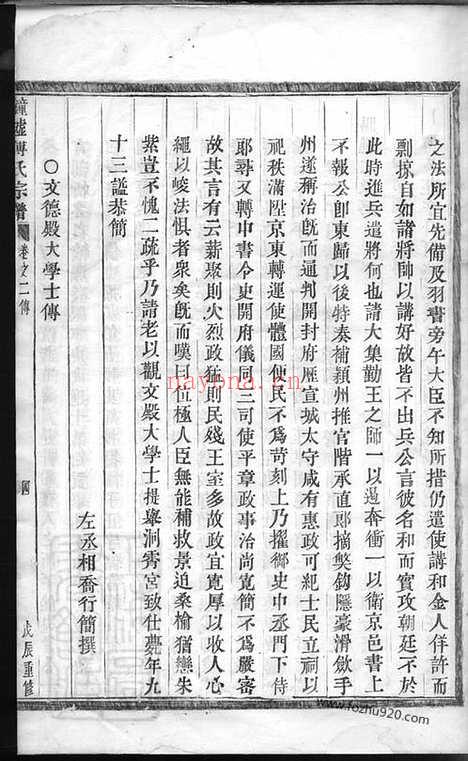 之法所宜先備及羽書旁午大臣不知所措仍遣使講和金人佯許而
剽掠自如諸將帥以講好故皆不出兵公言彼名和而實攻朝廷不於
此時進兵遣將何也請大集勤王之師一以遏奔衝一以衛京邑書上
不報公卽東歸以後特奏補潁州推官階承直郎摘奬鈎隱豪滑斂手
州遂稱治旣而通判開封府歷宣城太守咸有惠政可紀士民立祠以
祀秩滿陞京東轉運使體國便民不爲苛刻上乃擢御史中丞門下侍
郎尋又轉中書令吏開府儀同三司使平章政事治尚寬簡不爲嚴審
故其言有云薪聚則火烈政猛則民殘王室多故政宜寬厚以收人心
繩以峻法惧者衆矣旣而嘆曰位極人臣無能補救景迫桑榆猶戀朱
紫豈不愧二疏乎乃請老以觀文殿大學士提舉洞霄宮致仕薨年九
十三謚恭簡
左丞相喬行簡撰
〇文德殿大學士傳
鐘墟傅氏宗譜
卷之二傳
四
戊辰重修
nayona.cn
www.fozhu920.com